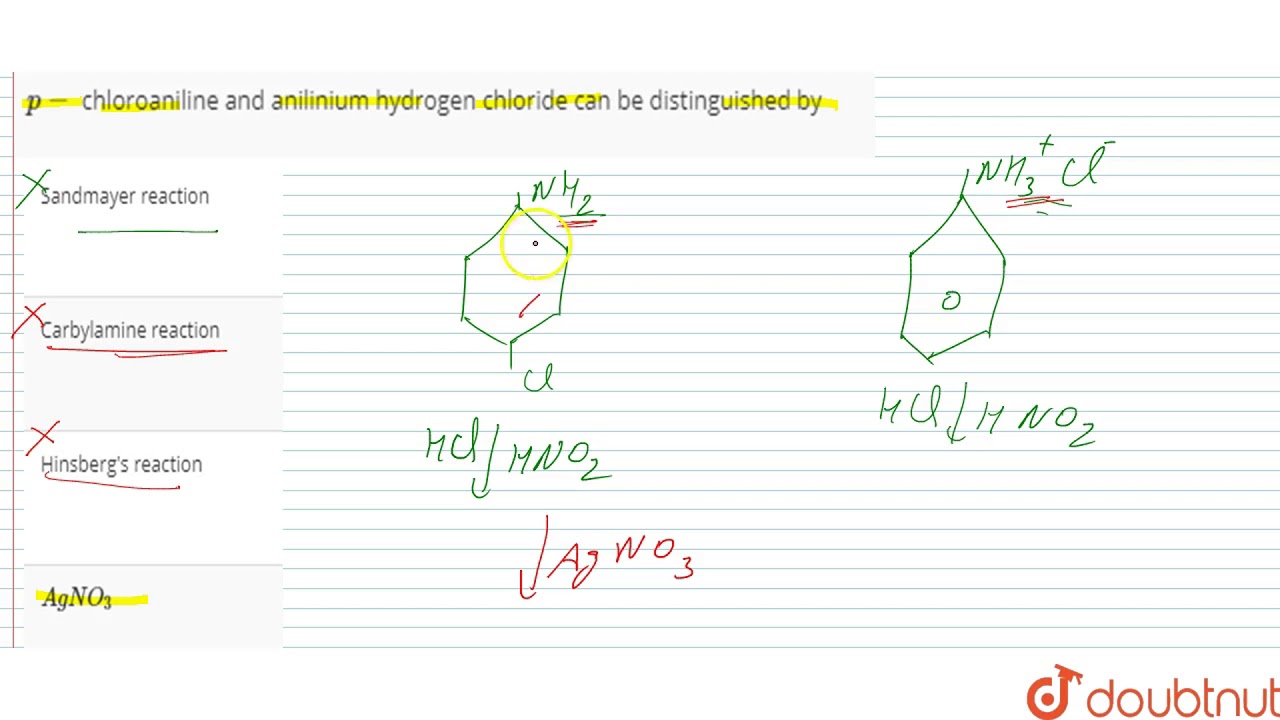 p – chloroaniline and anilinium hydrogen chloride can be distinguished by
Sandmayer reaction
Carbylamine reaction
Hinsberg's reaction
AgNO3
NH2
Cl
HCl HNO2
AgNO3
NH3+ Cl-
HCl HNO2
doubtnut